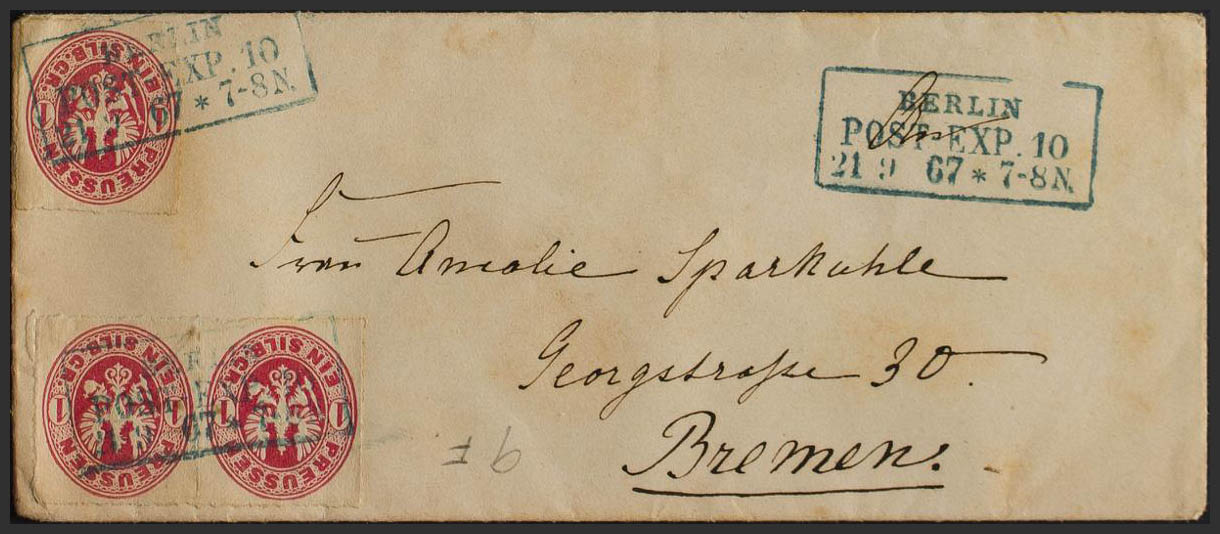 BERLIN
POST-EXP. 10
21 9 67 * 7-8N.
EIN SILB.GR.
1 1
PREUSSEN
BERLIN
POST-EXP. 10
21 9 67 * 7-8N.
Frau Amalie Sparkuhle
Georgstraße 30.
Bremen.
EIN SILB.GR.
1 1
PREUSSEN
EIN SILB.GR.
1 1
PREUSSEN
POST-EXP.
67 * 7